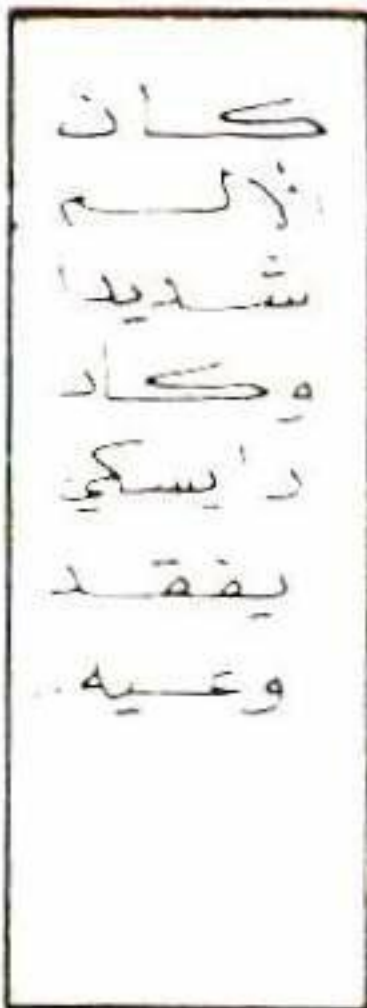 كان
الألم
شديدا
وكاد
رايسكي
يفقد
وعيه..